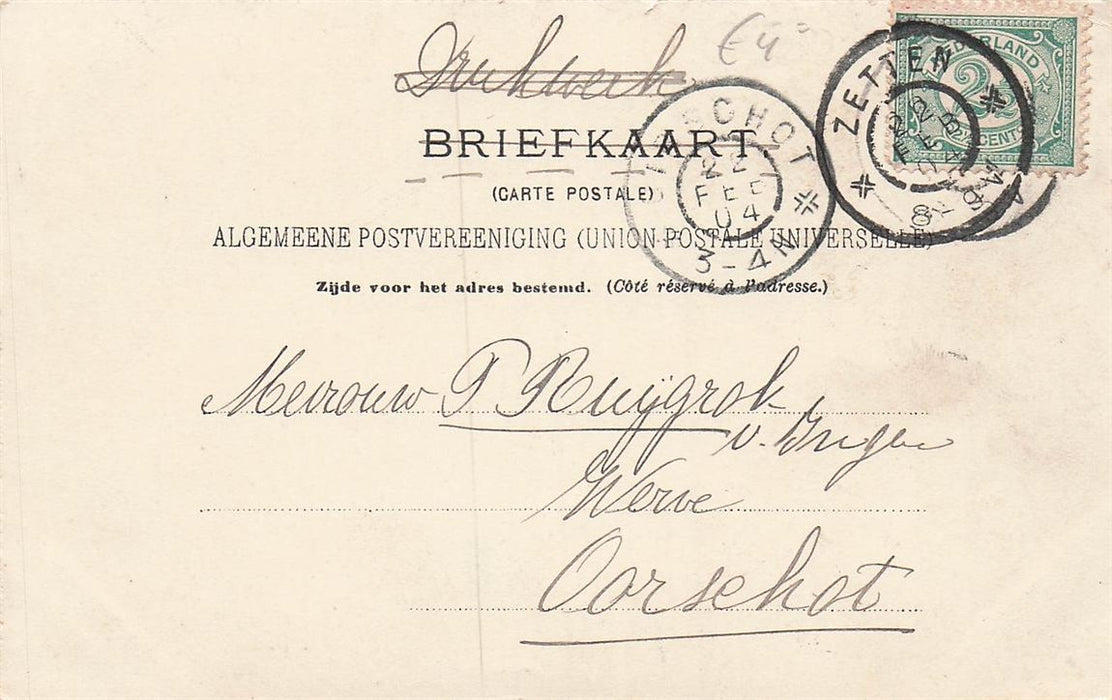 Drukwerk
€ 4
NEDERLAND
2½
CENT
ZETTEN
22 FEB
8
BRIEFKAART
(CARTE POSTALE)
ALGEMEENE POSTVEREENIGING (UNION POSTALE UNIVERSELLE)
Zijde voor het adres bestemd. (Côté réservé à l'adresse.)
22
FEB
04
3-4N
Mevrouw P Ruijgrok
v. Ingen
Werve
Oorschot